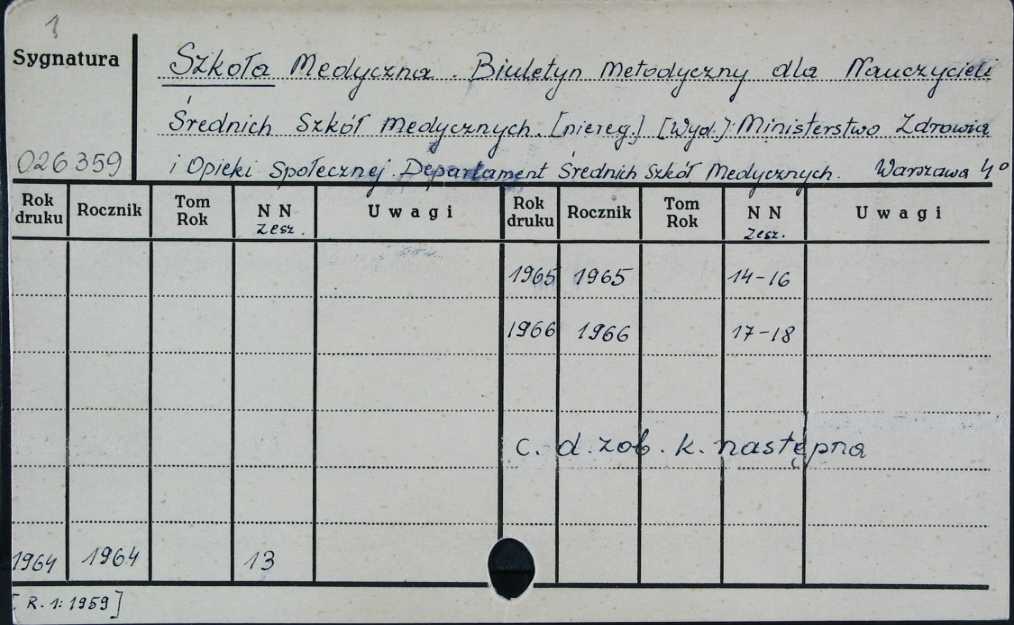 1
Sygnatura
Szkoła Medyczna. Biuletyn Metodyczny dla Nauczycieli
Średnich Szkół Medycznych. [niereg.] [Wyd.]: Ministerstwo Zdrowia
026359
i Opieki Społecznej. Departament Średnich Szkół Medycznych. Warszawa 4°
Rok druku Rocznik Tom Rok N N zesz. Uwagi Rok druku Rocznik Tom Rok N N zesz. Uwagi
1965 1965 14-16
1966 1966 17-18
c. d. zob. k. następna
1964 1964 13
[R. 1: 1959]